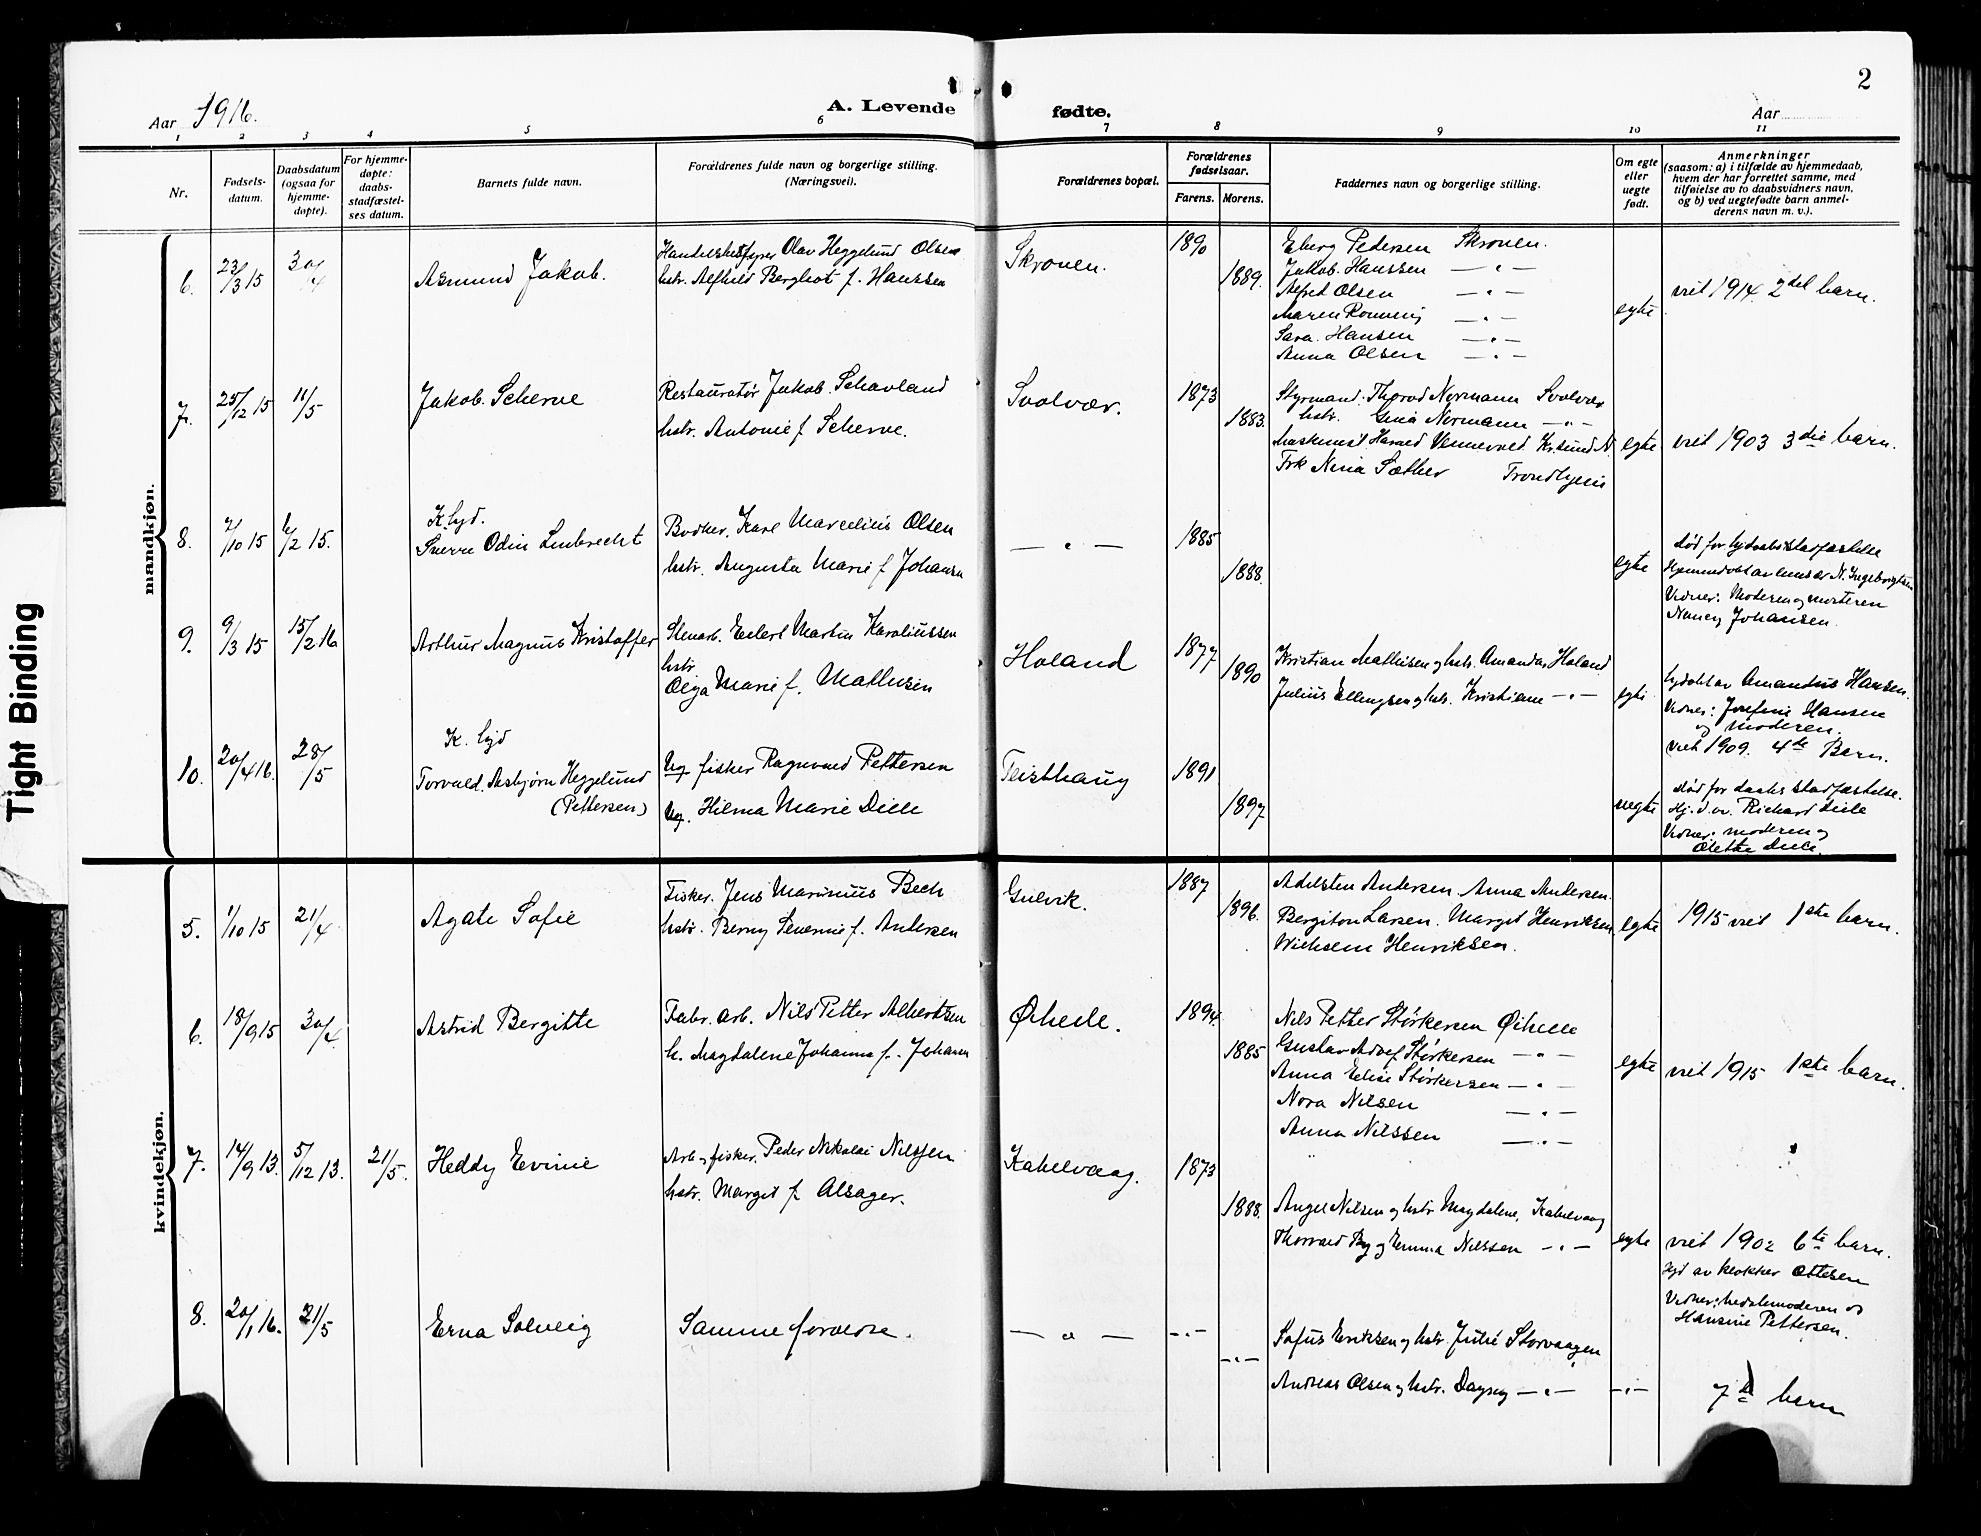 Tight Binding
2
Aar 1916.
A. Levende fødte.
Aar
1 2 3 4 5 6 7 8 9 10 11
Nr.
Fødsels-
datum.
Daabsdatum
(ogsaa for
hjemme-
døpte).
For hjemme-
døpte:
daabs-
stadfæstel-
ses datum.
Barnets fulde navn.
Forældrenes fulde navn og borgerlige stilling.
(Næringsvei).
Forældrenes bopæl.
Forældrenes
fødselsaar.
Farens. Morens.
Faddernes navn og borgerlige stilling.
Om egte
eller
uegte
født.
Anmerkninger
(saasom: a) i tilfælde av hjemmedaab,
hvem der har forrettet samme, med
tilføielse av to daabsvidners navn,
og b) ved uegtefødte barn anmel-
derens navn m. v.).
mandkjøn.
6. 23/3 15 30/4
Asmund Jakob.
Olav Heggelund Olsen
hstr. Alfhild Bergliot f. Hanssen
Skroven.
1890
1889.
Pedersen Skroven.
Jakob. Hanssen — " —
Alfred Olsen — " —
Maren — " —
Sara. Hansen — " —
Anna Olsen — " —
egte
viet 1914. 2det barn.
7. 25/12 15 11/5
Jakob. Scherve
Restauratør Jakob. Schavland
hstr. Antonie f. Scherve.
Svolvær.
1873
1883.
Styrmand. Thorod Normann Svolvær
hstr. Gina Normann — " —
Maskinist Harald Vennevold Kr.sund N.
Frk Nina Sæther Trondhjem
egte
viet 1903 3die barn.
8. 7/10 15 6/2 15.
K hjd.
Sverre Odin Lmbrecht
Bødker. Karl Marcelius Olsen
hstr. Augusta Marie f. Johansen
— " —
1885
1888.
egte
død før hjdaabsstadfæstelse
Hjemmedøbt av N. Ingebrigtsen
Vidner: Moderen og mosteren
Nancy Johansen.
9. 9/3 15 15/2 16
Arthur Magnus Kristoffer
Stenarb. Edvert Martin Karoliussen
hstr.
Olga Marie f. Mathisen
Holand
1877
1890
Kristian Mathisen og hstr. Amanda Holand
Julius Ellingsen og hstr. Kristiane — " —
egte
hjdøbt av Amandus Hansen.
Vidner: Josefine Hansen
og moderen.
viet 1909. 4de Barn.
10. 20/4 16. 28/5
K. hjd
Torvald. Asbjørn Heggelund
(Pettersen)
Ug fisker Ragnvald Pettersen
Ug. Hilma Marie Dille
Teisthaug
1891
1897
uegte
død før daabsstadfæstelse.
Hj. d. av. Richard Dille
Vidner: moderen og
Olette Dille.
kvindekjøn.
5. 1/10 15 21/4
Agate Sofie
Fisker. Jens Marinius Bech
hstr. Berny Severine f. Andersen
Gulvik.
1887
1896.
Adelsten Andersen. Anna Andersen.
Bergiton Larsen. Margit Henriksen
Wilhelm Henriksen.
egte
1915 viet 1ste barn.
6. 18/9 15 30/4
Astrid Bergitte
Fabr. arb. Nils Petter Albertsen
h. Magdalene Johanna f. Johansen
Ørhelle.
1894.
1885
Nils Petter Størkersen Ørhelle
Gustav Adolf Størkersen — " —
Anna Elise Størkersen — " —
Nora Nilsen — " —
Anna Nilssen — " —
egte
viet 1915 1ste barn.
7. 14/9 13. 5/12 13. 21/5.
Heddy Evinie
Arb. og fisker. Peder Nikolai Nilssen
hstr. Margit f. Alsager.
Kabelvaag.
1873
1888.
Angel Nilsen og hstr Magdalene, Kabelvaag
Thorvald By og Emma Nilssen — " —
egte
viet 1902 6te barn.
Hjd av klokker Ottesen
Vidner: bedstemoderen og
Hansine Pettersen.
8. 20/1 16. 21/5
Erna Solveig
Samme forældre.
— " — — " —
— " —
Sofus Eriksen og hstr. Julie Storvaagen
Andreas Olsen og hstr. Dagny — " —
— " —
7de barn